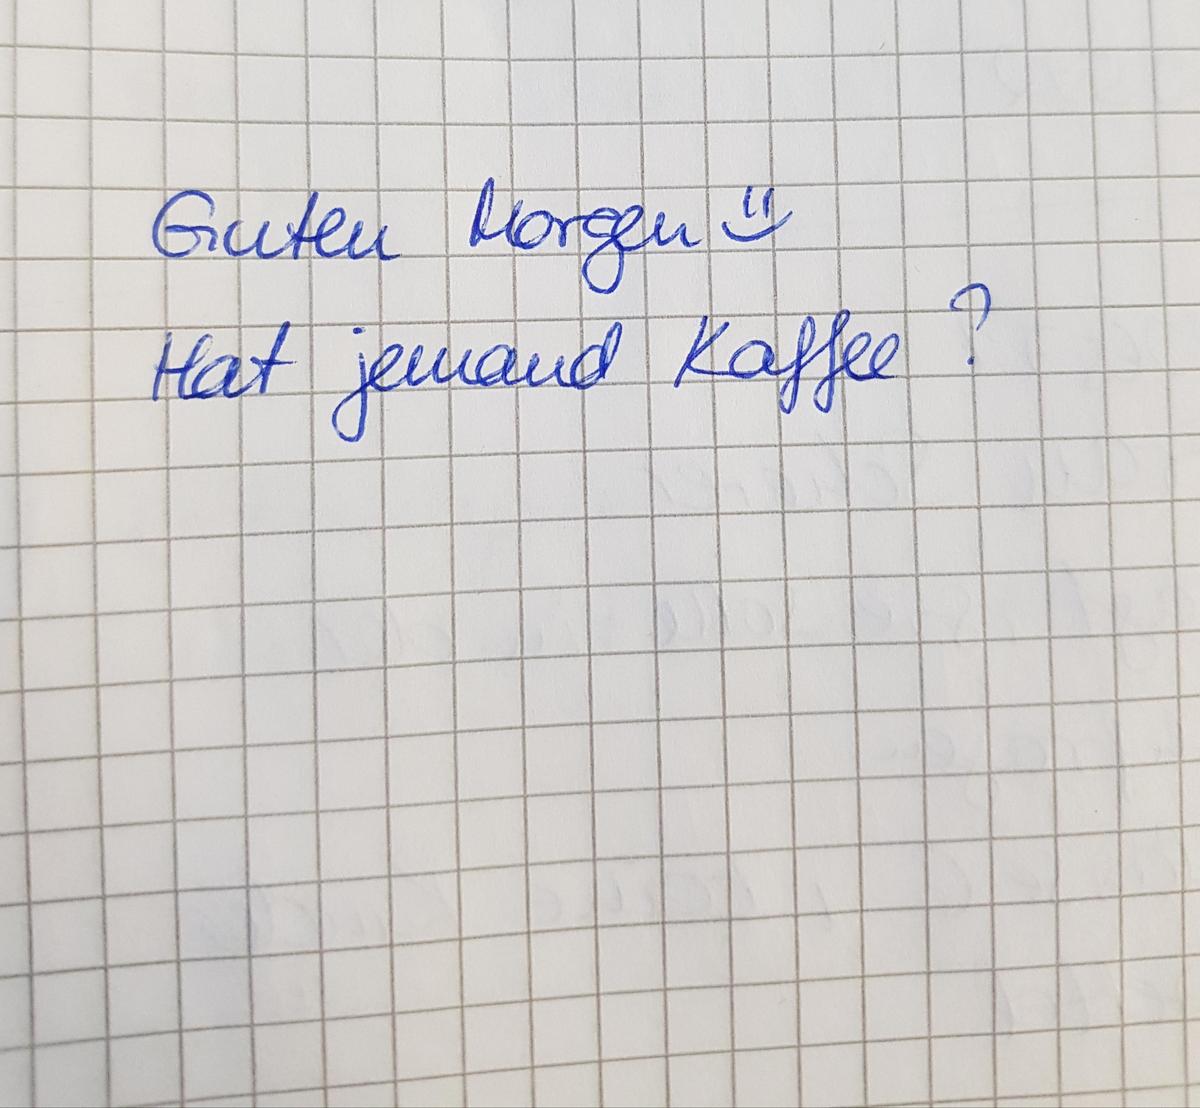 Guten Morgen ☺
Hat jemand Kaffee ?